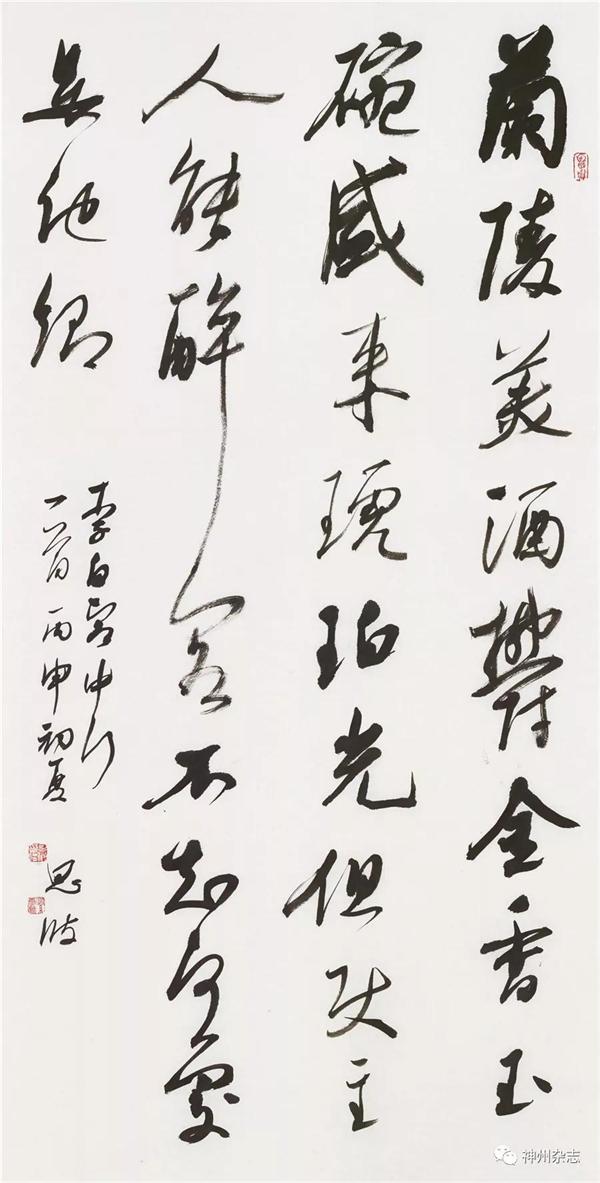 蘭陵美酒欝金香玉
碗盛来琥珀光但使主
人能醉客不知何處
是他鄉
李白客中行
一首丙申初夏
思
神州杂志